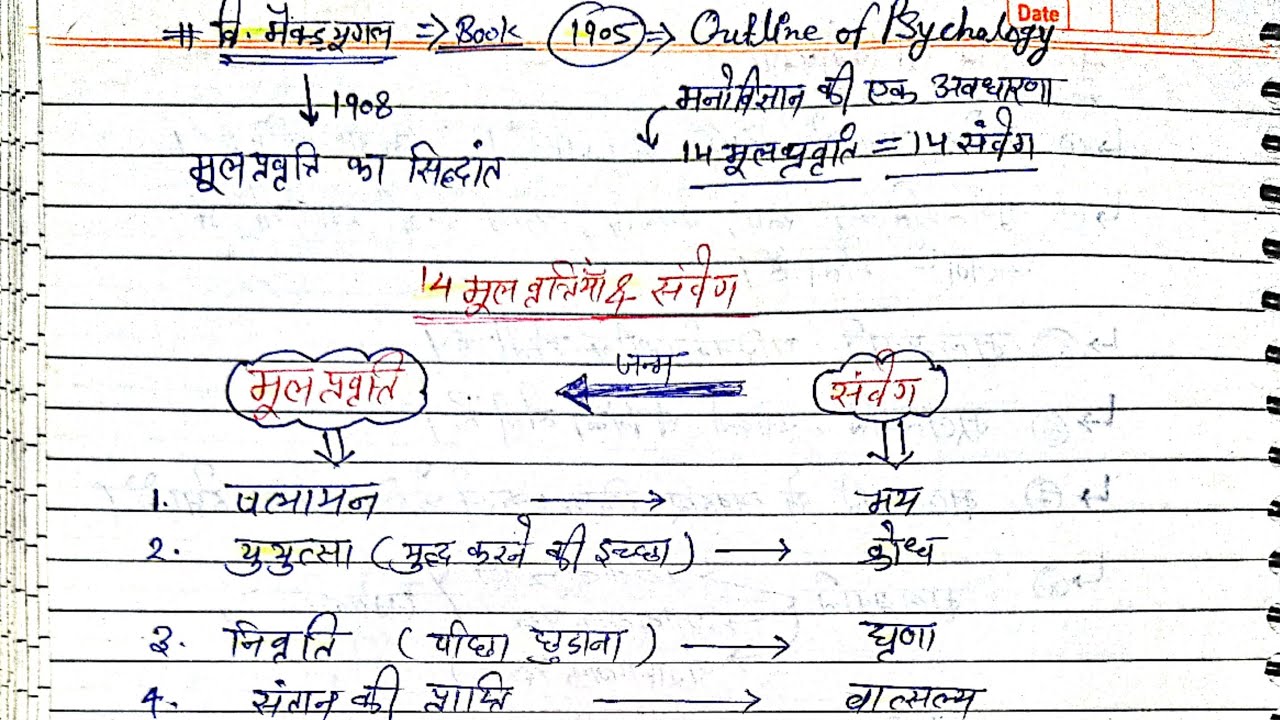 # वि. मैक्डूगल => Book (1905) => Outline of Psychology
Date
↓ 1908
मनोविज्ञान की एक अवधारणा
मूल प्रवृत्ति का सिद्धांत
14 मूल प्रवृति = 14 संवेग
14 मूल प्रवृत्तियाँ & संवेग
मूल प्रवृति ← जन्म संवेग
1. पलायन → भय
2. युयुत्सा (युद्ध करने की इच्छा) → क्रोध
3. निवृति (पीछा छुडाना) → घृणा
4. संतान की प्राप्ति → वात्सल्य